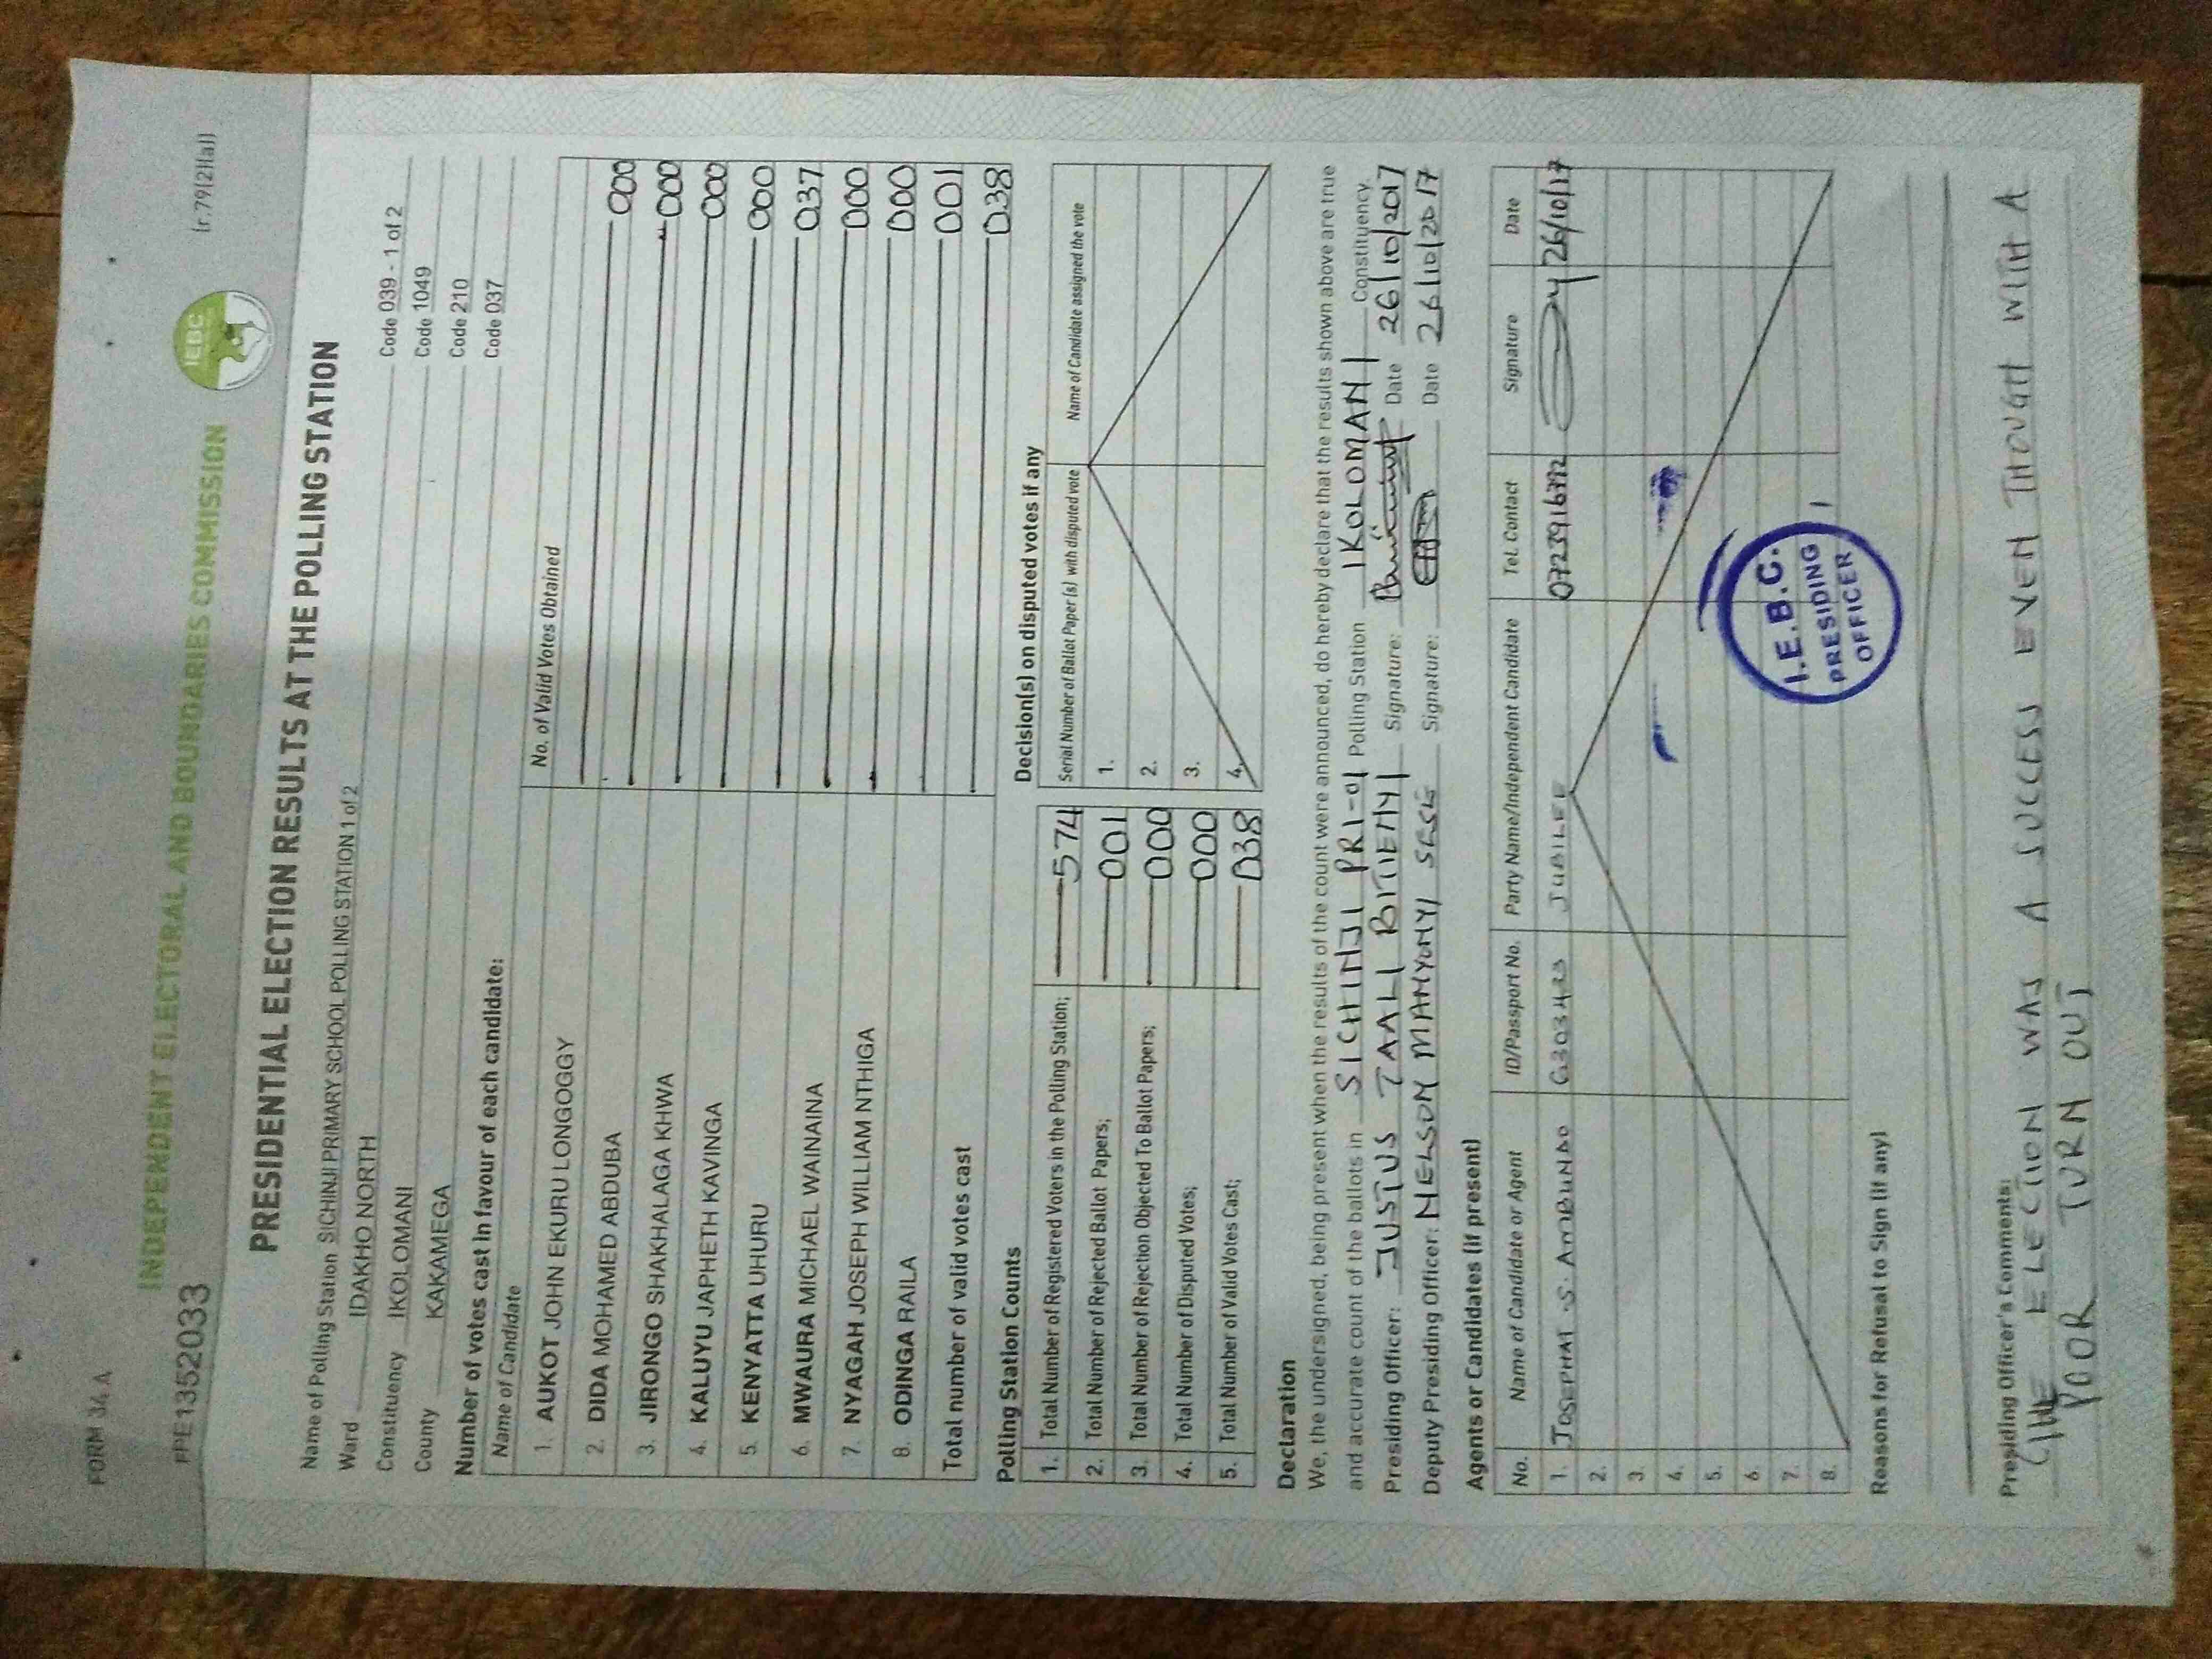 FORM 34 A
(r.79(2)(a))
INDEPENDENT ELECTORAL AND BOUNDARIES COMMISSION
IEBC
PPE1352033
PRESIDENTIAL ELECTION RESULTS AT THE POLLING STATION
Name of Polling Station SICHINJI PRIMARY SCHOOL POLLING STATION 1 of 2 Code 039 - 1 of 2
Ward IDAKHO NORTH Code 1049
Constituency IKOLOMANI Code 210
County KAKAMEGA Code 037
Number of votes cast in favour of each candidate:
Name of Candidate No. of Valid Votes Obtained
1. AUKOT JOHN EKURU LONGOGGY 000
2. DIDA MOHAMED ABDUBA 000
3. JIRONGO SHAKHALAGA KHWA 000
4. KALUYU JAPHETH KAVINGA 000
5. KENYATTA UHURU 037
6. MWAURA MICHAEL WAINAINA 000
7. NYAGAH JOSEPH WILLIAM NTHIGA 000
8. ODINGA RAILA 001
Total number of valid votes cast 038
Polling Station Counts
1. Total Number of Registered Voters in the Polling Station; 574
2. Total Number of Rejected Ballot Papers; 001
3. Total Number of Rejection Objected To Ballot Papers; 000
4. Total Number of Disputed Votes; 000
5. Total Number of Valid Votes Cast; 038
Decision(s) on disputed votes if any
Serial Number of Ballot Paper(s) with disputed vote Name of Candidate assigned the vote
1.
2.
3.
4.
Declaration
We, the undersigned, being present when the results of the count were announced, do hereby declare that the results shown above are true
and accurate count of the ballots in SICHINJI PRI-01 Polling Station IKOLOMANI Constituency.
Presiding Officer: JUSTUS TAALI Signature: Date 26/10/2017
Deputy Presiding Officer: NELSON MANYONYI Signature: Date 26/10/2017
Agents or Candidates (if present)
No. Name of Candidate or Agent ID/Passport No. Party Name/Independent Candidate Tel. Contact Signature Date
1. JOSEPHAT .S. AMBUNDO JUBILEE 26/10/17
2.
3.
4.
5.
6.
7.
8.
I.E.B.C.
PRESIDING
OFFICER
Reasons for Refusal to Sign (if any)
Presiding Officer's Comments:
THE ELECTION WAS A SUCCESS EVEN THOUGH WITH A
POOR TURN OUT